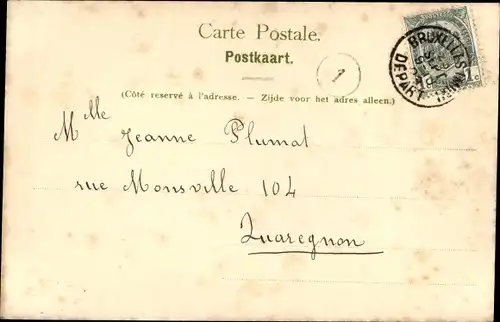 Carte Postale.
Postkaart.
1
(Côté reservé à l'adresse. — Zijde voor het adres alleen.)
Mlle Jeanne Plumat
rue Monsville 104
Quaregnon
BRUXELLES
DÉPART
1c